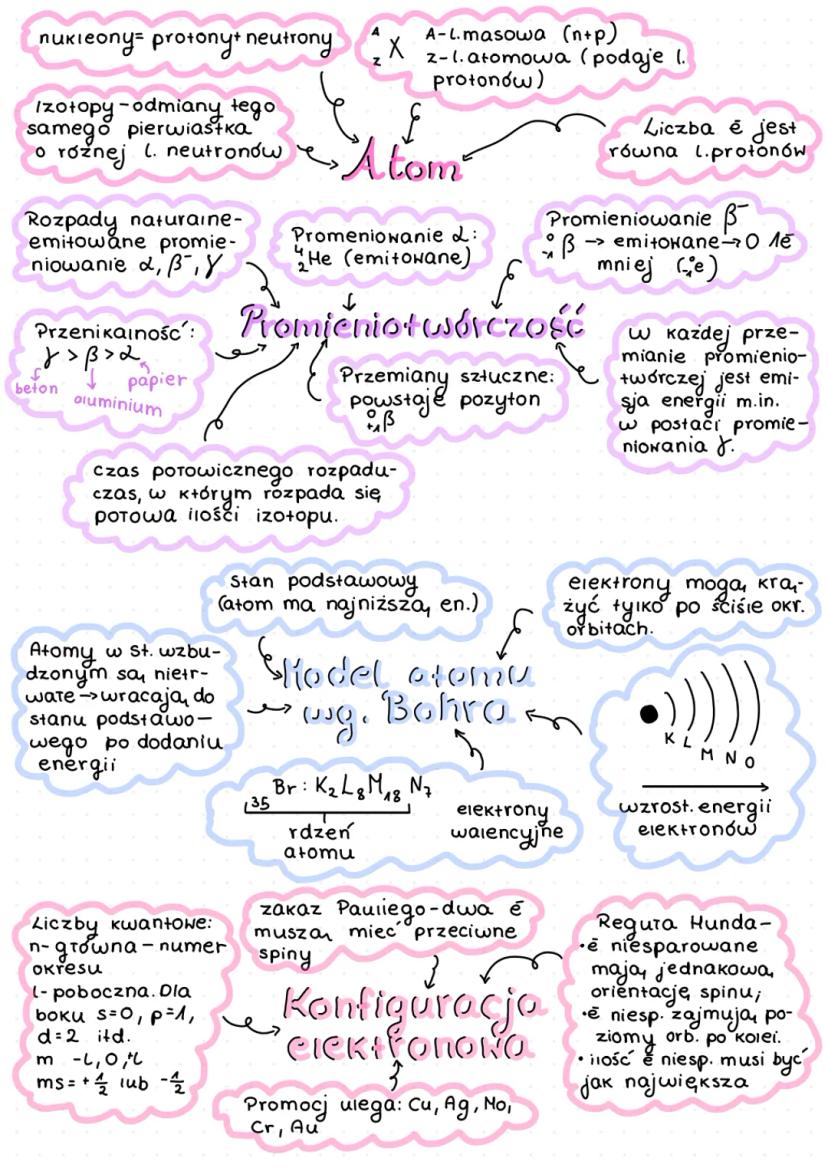 nukleony= protony+ neutrony
A
Z X
A-l.masowa (n+p)
z-l.atomowa (podaje l.
protonów)
Izotopy-odmiany tego
samego pierwiastka
o różnej l. neutronów
Liczba ē jest
równa l.protonów
Atom
Rozpady naturalne-
emitowane promie-
niowanie α, β⁻, γ
Promeniowanie α:
⁴₂He (emitowane)
Promieniowanie β⁻
⁰₋₁β → emitowane→O 1ē
mniej (⁰₋₁e)
Promieniotwórczość
Przenikalność:
γ > β > α
beton
aluminium
papier
Przemiany sztuczne:
powstaje pozyton
⁰₊₁β
W każdej prze-
mianie promienio-
twórczej jest emi-
sja energii m.in.
w postaci promie-
niowania γ.
czas połowicznego rozpadu-
czas, w którym rozpada się
połowa ilości izotopu.
stan podstawowy
(atom ma najniższą en.)
elektrony mogą krą-
żyć tylko po ściśle okr.
orbitach.
Atomy w st. wzbu-
dzonym są nietr-
wałe→wracają do
stanu podstawo-
wego po dodaniu
energii
Model atomu
wg. Bohra
K L M N O
wzrost. energii
elektronów
₃₅Br : K₂L₈M₁₈ N₇
rdzeń
atomu
elektrony
walencyjne
Liczby kwantowe:
n- główna-numer
okresu
l- poboczna. Dla
boku s=0, p=1,
d=2 itd.
m -l,0,+l
ms=+½ lub -½
zakaz Pauliego-dwa ē
muszą mieć przeciwne
spiny
Konfiguracja
elektronowa
Promocj ulega: Cu, Ag, Mo,
Cr, Au
Reguła Hunda-
•ē niesparowane
mają jednakową
orientację spinu;
•ē niesp. zajmują po-
ziomy orb. po kolei.
• ilość ē niesp. musi być
jak największa